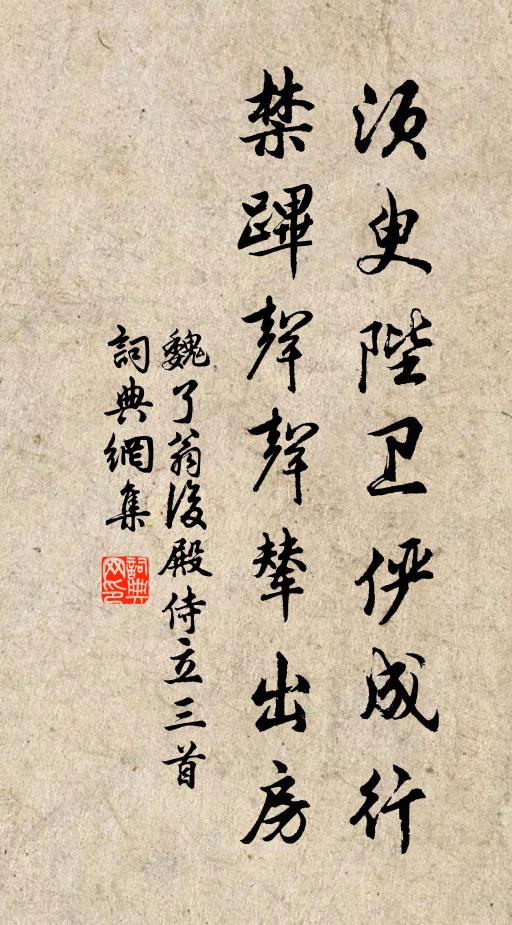 须臾陛卫俨成行
禁蹕聲聲辇出房
魏了翁後殿侍立三首
詞典網集
詞典网印